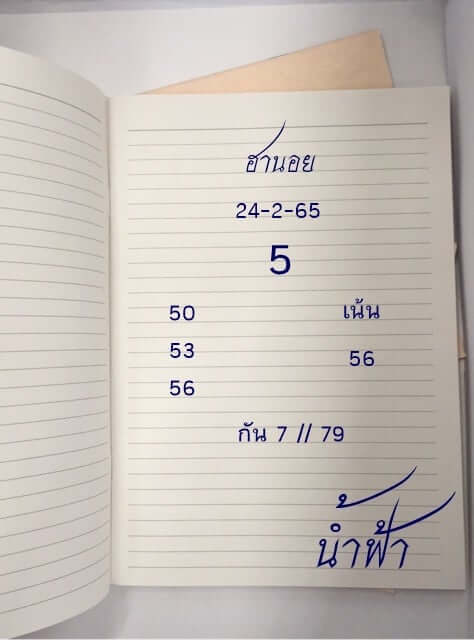 ฮานอย
24-2-65
5
50 เน้น
53
56 56
กัน 7 // 79
น้ำฟ้า